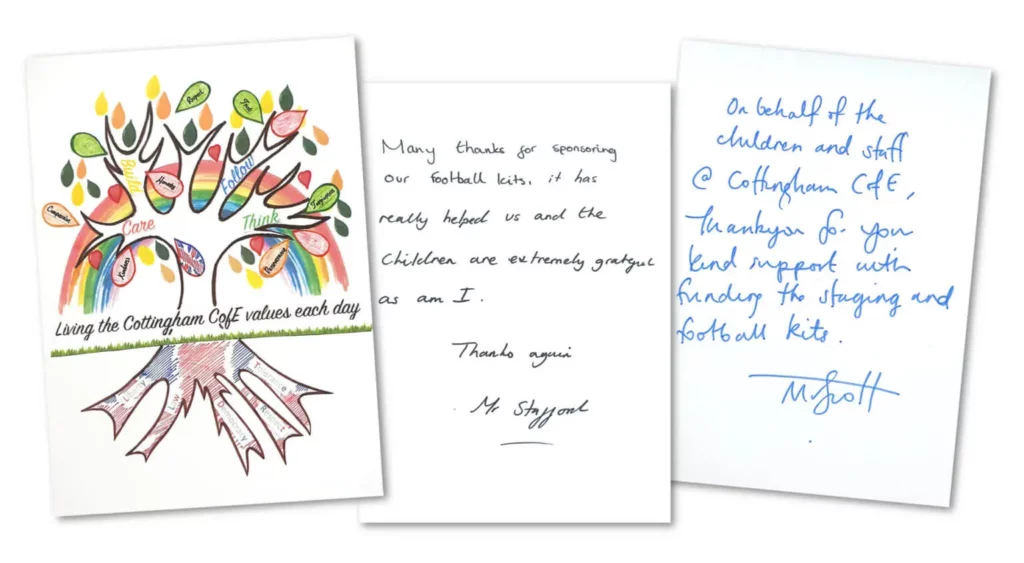 Respect
Trust
Honesty
Compassion
Kindness
Perseverance
Build
Follow
Care
Think
Living the Cottingham CofE values each day
Liberty
Law
Democracy
Respect
Tolerance
Many thanks for sponsoring
our football kits, it has
really helped us and the
children are extremely grateful
as am I.
Thanks again
Mr Stafford
On behalf of the
children and staff
@ Cottingham CofE,
Thankyou for your
kind support with
funding the staging and
football kits.